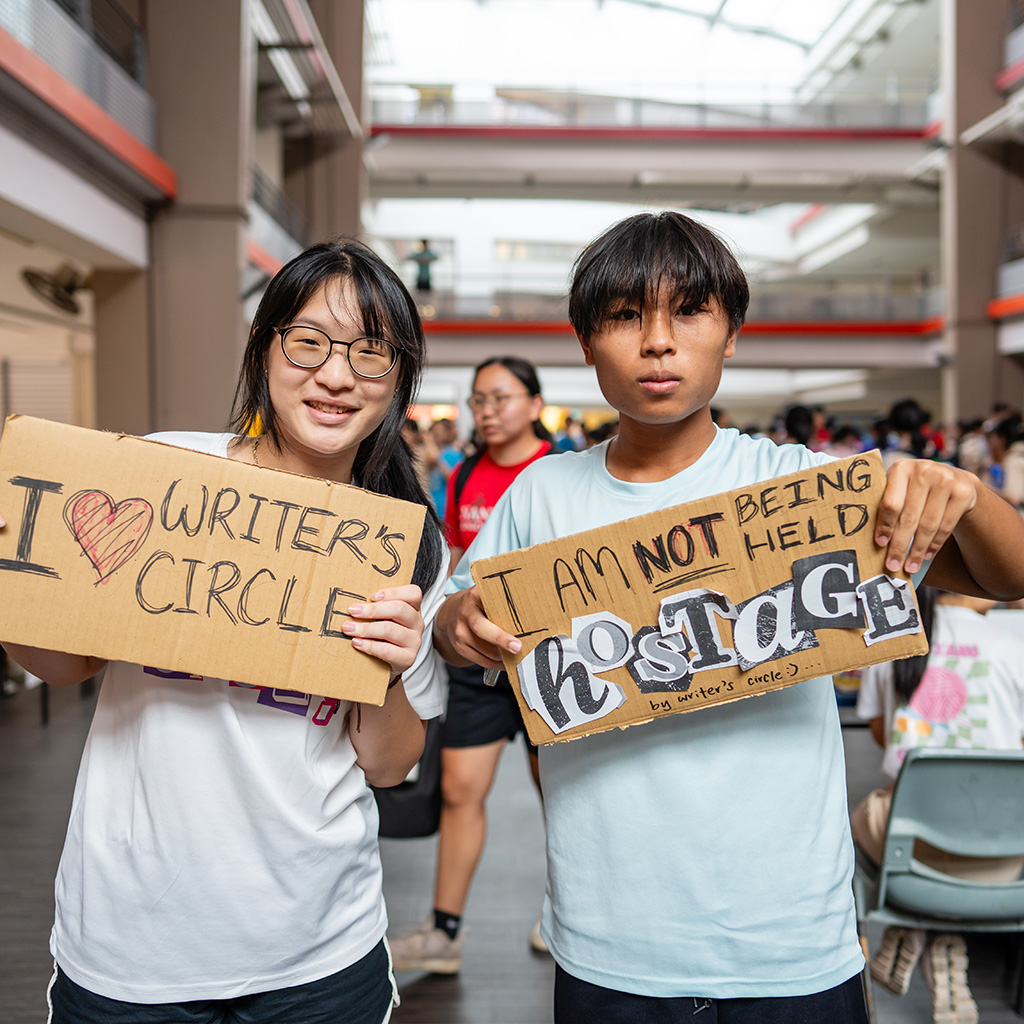 I ❤ WRITER'S
CIRCLE
I AM NOT BEING
HELD
hoSTaGE
by writer's circle:)...